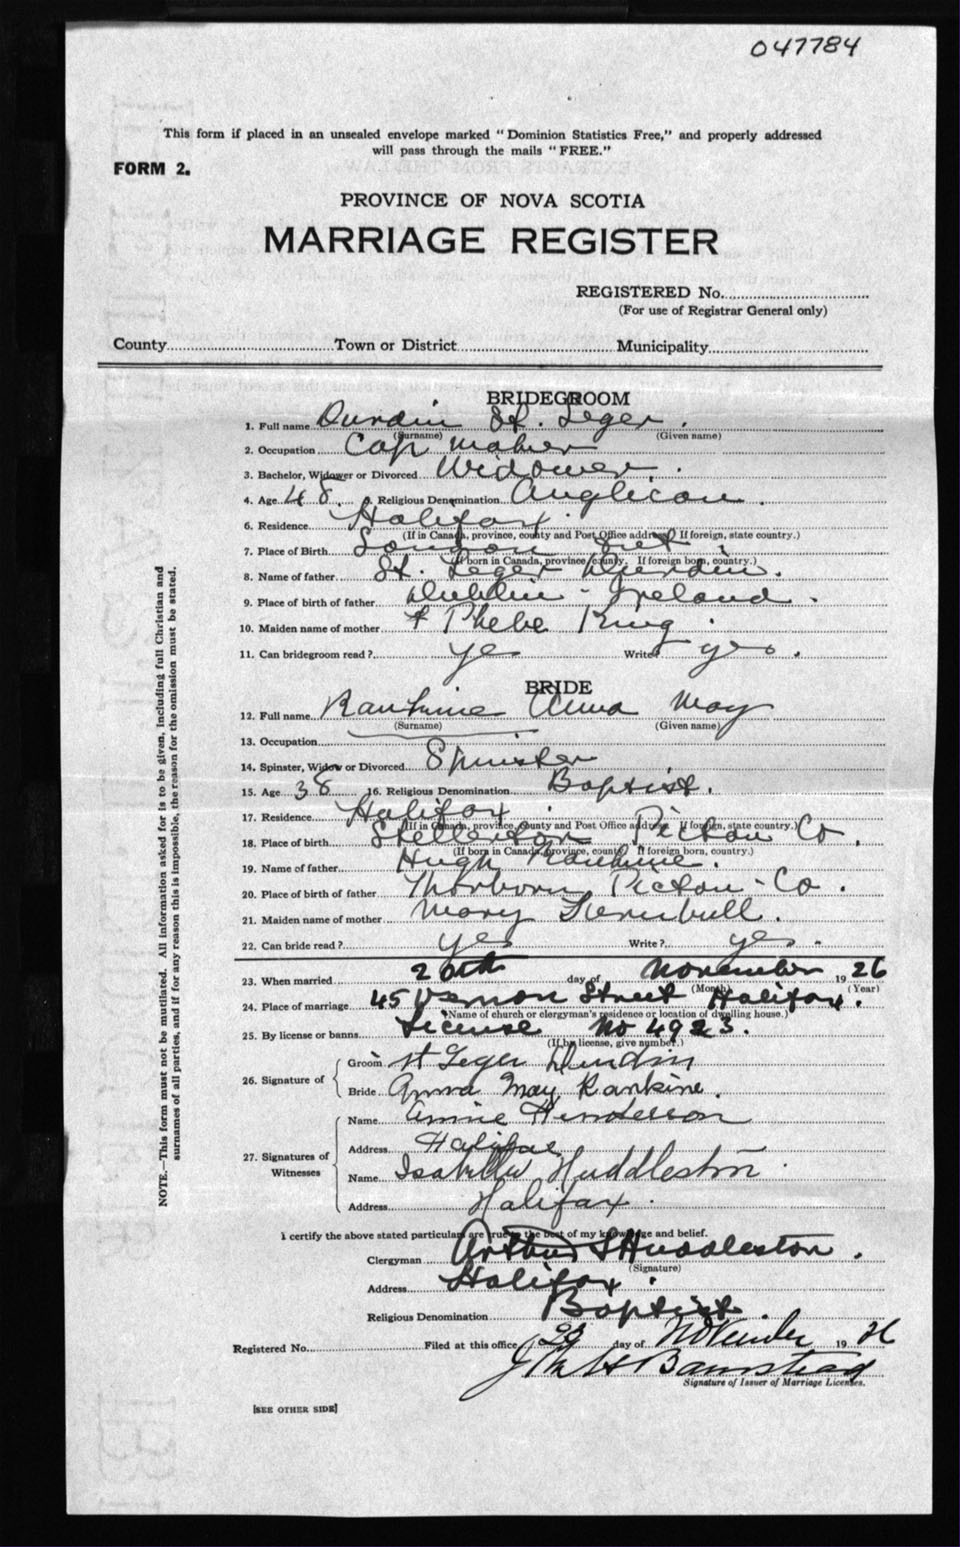 047784
This form if placed in an unsealed envelope marked "Dominion Statistics Free," and properly addressed
will pass through the mails "FREE."
FORM 2.
PROVINCE OF NOVA SCOTIA
MARRIAGE REGISTER
REGISTERED No.
(For use of Registrar General only)
County Town or District Municipality
BRIDEGROOM
1. Full name Durdin St. Leger.
(Surname) (Given name)
2. Occupation Cap Maker
3. Bachelor, Widower or Divorced Widower.
4. Age 48 5. Religious Denomination Anglican.
6. Residence Halifax.
(If in Canada, province, county and Post Office address. If foreign, state country.)
7. Place of Birth London
(If born in Canada, province/county. If foreign born, country.)
8. Name of father St. Leger Durdin.
9. Place of birth of father Dublin - Ireland.
10. Maiden name of mother Phebe King.
11. Can bridegroom read? yes Write? yes.
BRIDE
12. Full name Rankine Anna May
(Surname) (Given name)
13. Occupation
14. Spinster, Widow or Divorced Spinster
15. Age 38 16. Religious Denomination Baptist.
17. Residence Halifax.
(If in Canada, province, county and Post Office address. If foreign, state country.)
18. Place of birth Stellarton Pictou Co.
(If born in Canada, province, county. If foreign born, country.)
19. Name of father Hugh Rankine.
20. Place of birth of father Thorborn Pictou - Co.
21. Maiden name of mother Mary Turnbull.
22. Can bride read? yes Write? yes.
23. When married 20th day of November 1926
(Month) (Year)
24. Place of marriage 45 Vernon Street Halifax.
(Name of church or clergyman's residence or location of dwelling house.)
25. By license or banns License No 4923.
(If by license, give number.)
26. Signature of
Groom St Leger Durdin
Bride Anna May Rankine.
27. Signatures of Witnesses
Name Annie Henderson
Address Halifax
Name Isabella Huddleston
Address Halifax.
I certify the above stated particulars are true to the best of my knowledge and belief.
Clergyman Arthur Huddleston.
(Signature)
Address Halifax.
Religious Denomination Baptist.
Registered No. Filed at this office day of November 1926
Signature of Issuer of Marriage Licenses.
[SEE OTHER SIDE]
NOTE.—This form must not be mutilated. All information asked for is to be given, including full Christian and
surnames of all parties, and if for any reason this is impossible, the reason for the omission must be stated.